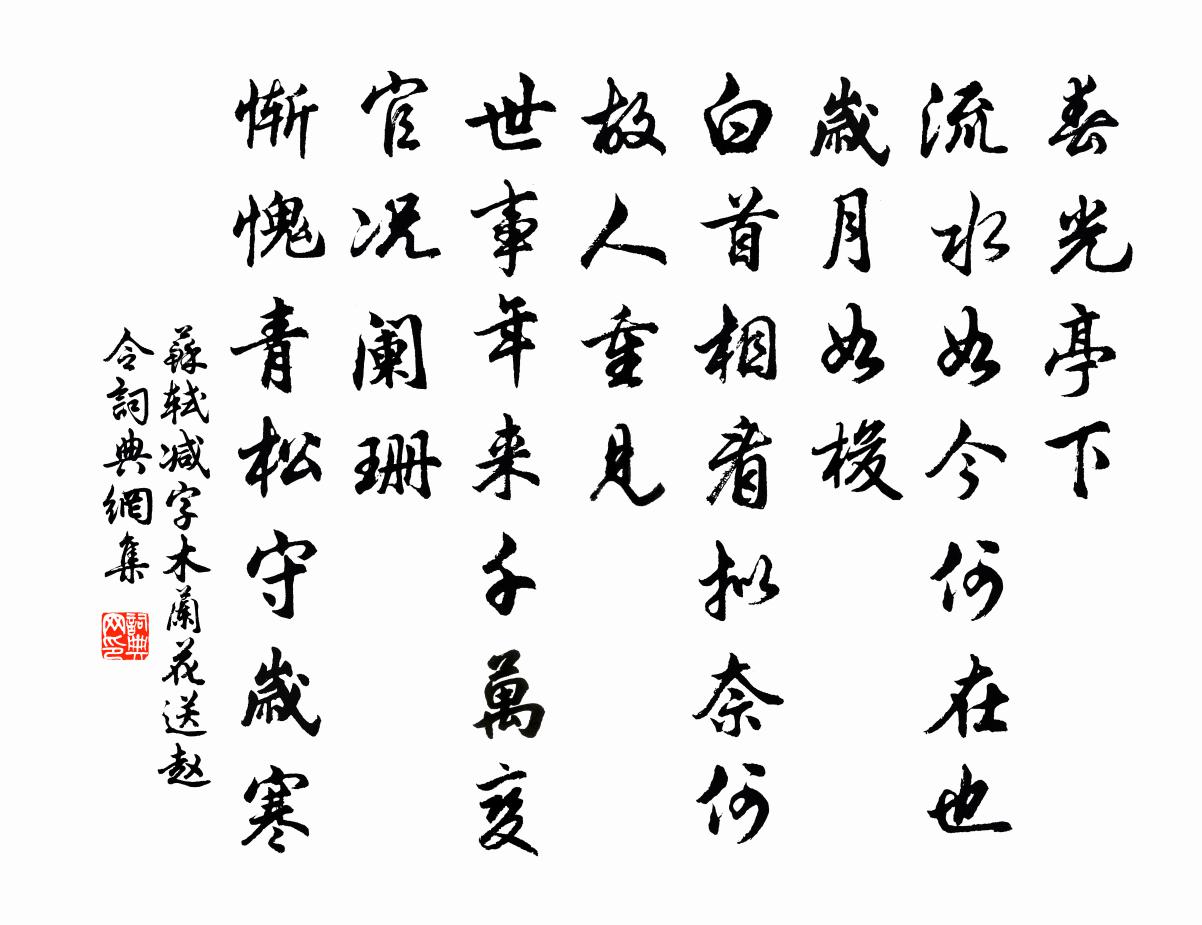 春光亭下
流水如今何在也
歲月如梭
白首相看拟奈何
故人重见
世事年来千萬变
官况阑珊
惭愧青松守歲寒
蘇轼减字木蘭花送赵
令詞典網集
詞典网印